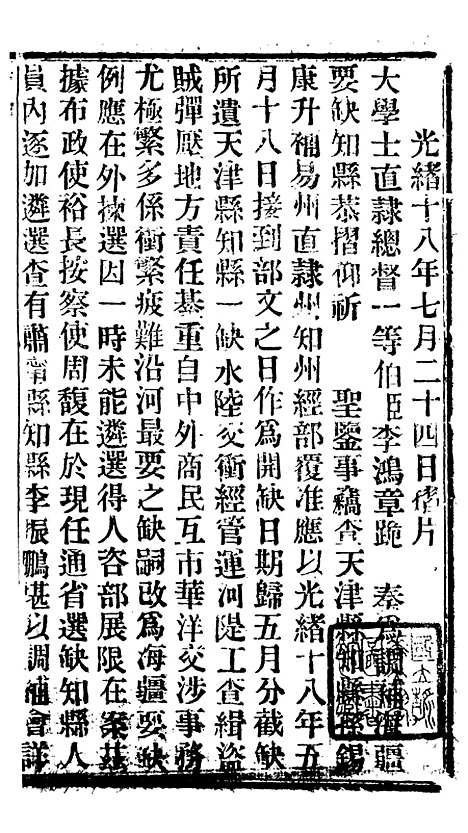 光緒十八年七月二十四日僃片
大學士直隸總督一等伯臣李鴻章跪 奏爲調補海疆
要缺知縣恭摺仰祈 聖鑒事竊查天津縣知縣孫錫
康升補易州直隸州知州經部覆准應以光緒十八年五
月十八日接到部文之日作爲開缺日期歸五月分截缺
所遺天津縣知縣一缺水陸交衝經管運河隄工查緝盜
賊彈壓地方責任綦重自中外商民互市華洋交涉事務
尤極繁多係衝繁疲難沿河最要之缺嗣改爲海疆要缺
例應在外揀選因一時未能遴選得人咨部展限在案茲
據布政使裕長按察使周馥在於現任通省選缺知縣人
員內逐加遴選查有肅甯縣知縣李振鵬堪以調補會詳